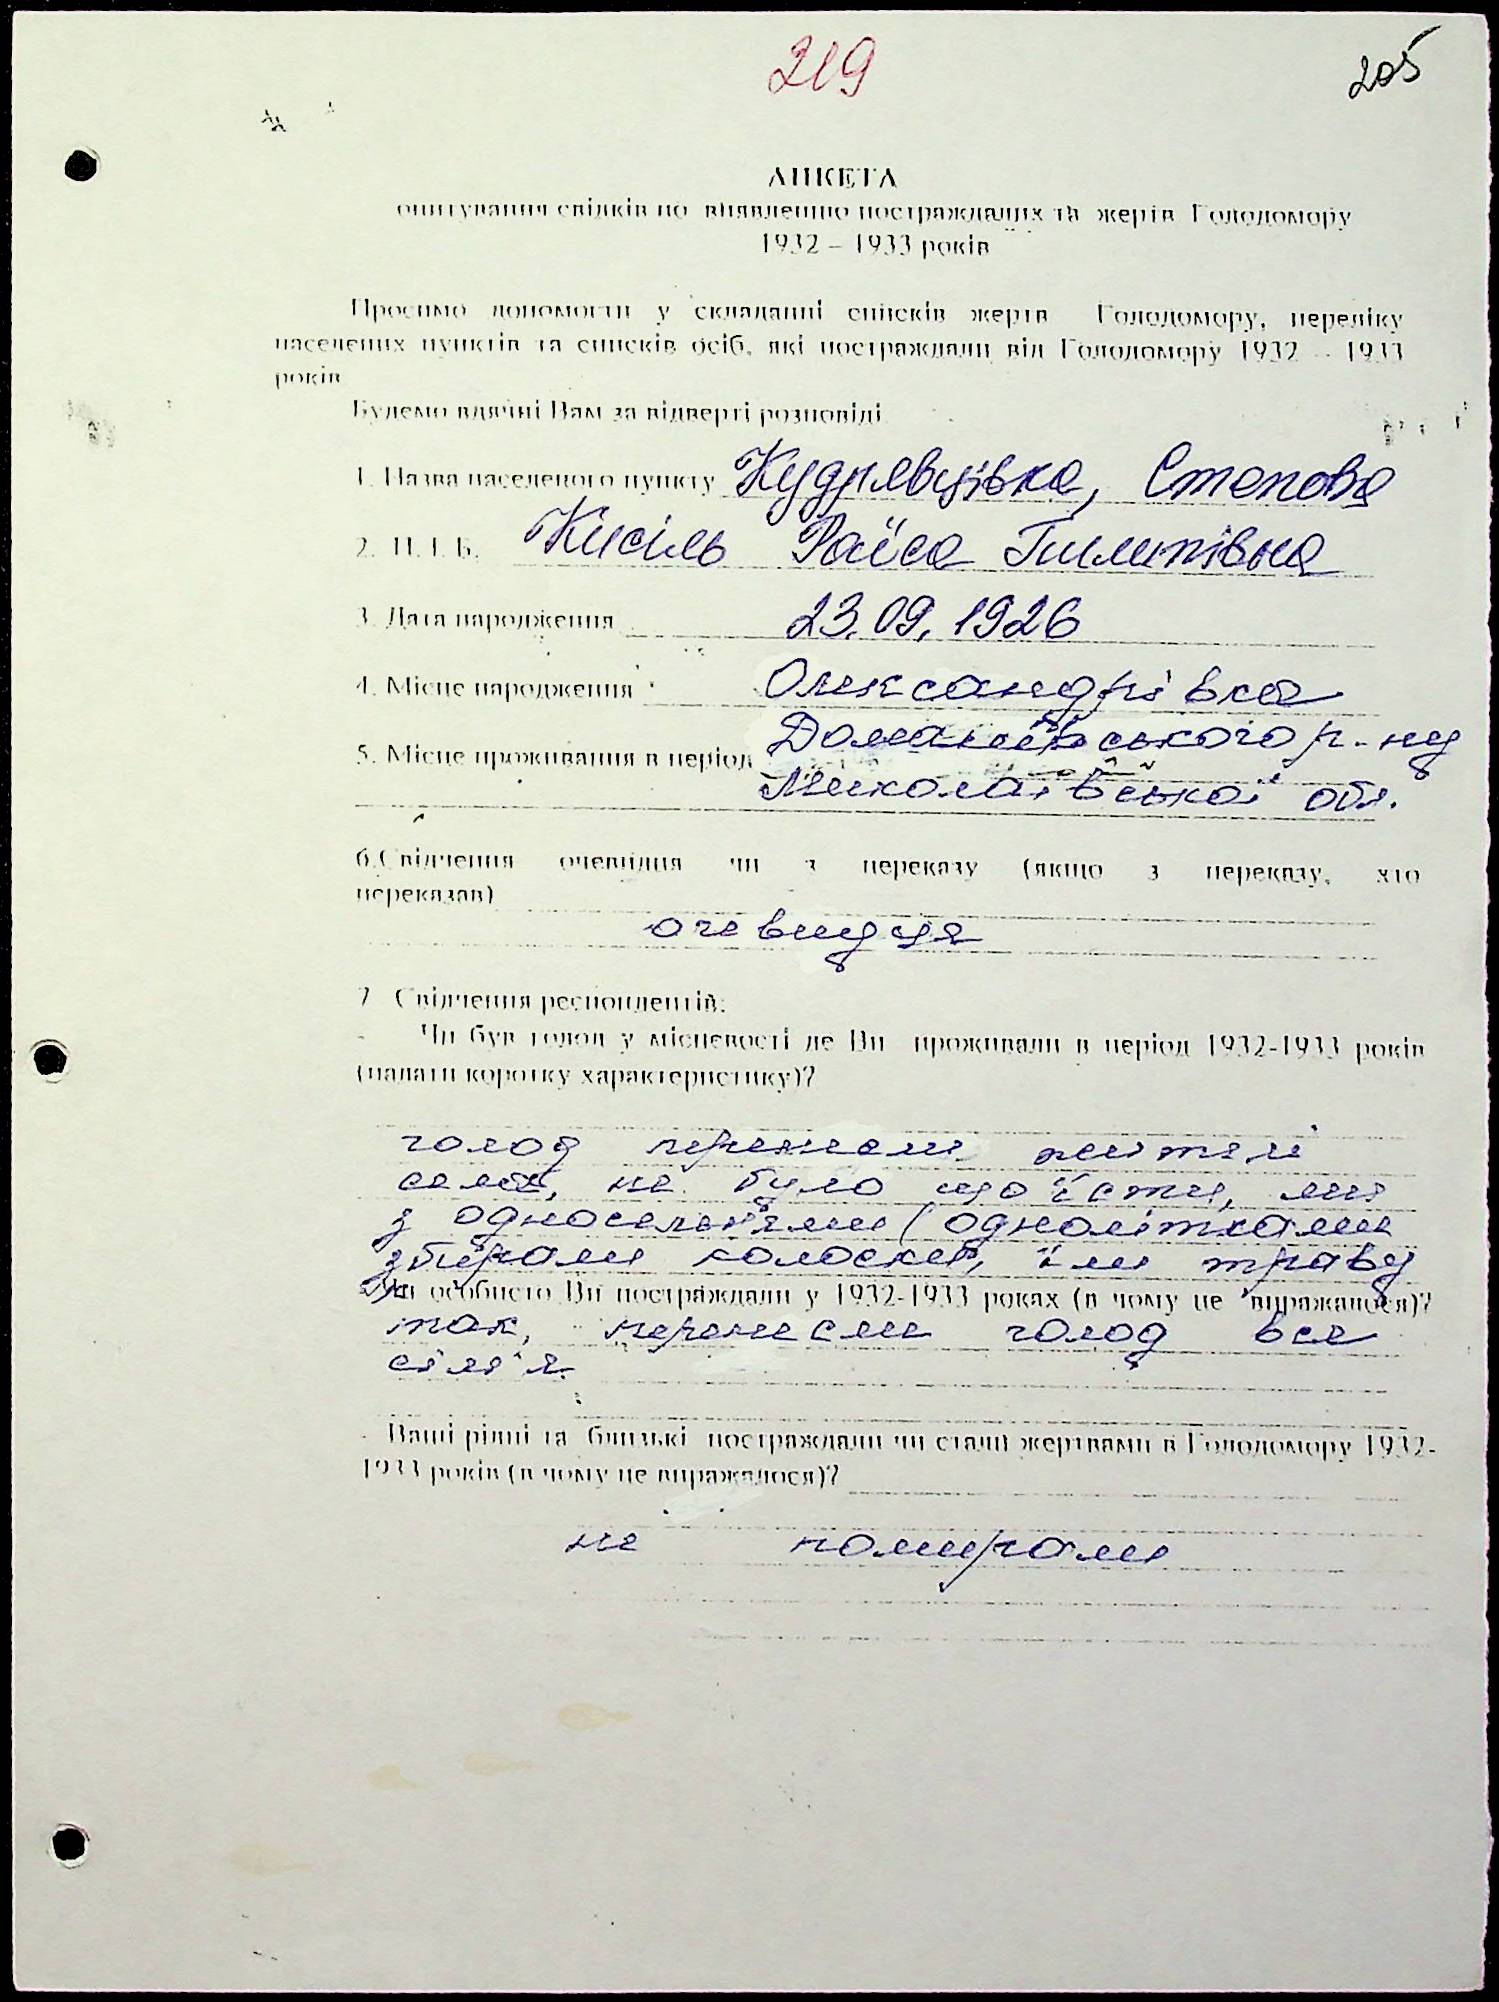 219
205
АНКЕТА
опитування свідків по виявленню постраждалих та жертв Голодомору
1932 – 1933 років
Просимо допомогти у складанні списків жертв Голодомору, переліку
населених пунктів та списків осіб, які постраждали від Голодомору 1932 - 1933
років
Будемо вдячні Вам за відверті розповіді
1. Назва населеного пункту Кудрявцівка, Степова
2. П.І.Б. Кисіль Раїса Пилипівна
3. Дата народження 23.09.1926
4. Місце народження Олександрівка
Доманівського р-ну
5. Місце проживання в період
Миколаївської обл.
6.Свідчення очевидця чи з переказу (якщо з переказу, хто
переказав)
очевидця
7 Свідчення респондентів:
- Чи був голод у місцевості де Ви проживали в період 1932-1933 років
(надати коротку характеристику)?
голод пережали жителі
села, не було що їсти, ми
з односельчями (однолітками
збирали колоски, їли траву
Чи особисто Ви постраждали у 1932-1933 роках (в чому це виражалося)?
так, перенесли голод вся
сім'я.
- Ваші рідні та близькі постраждали чи стали жертвами в Голодомору 1932-
1933 років (в чому це виражалося)?
не помирали